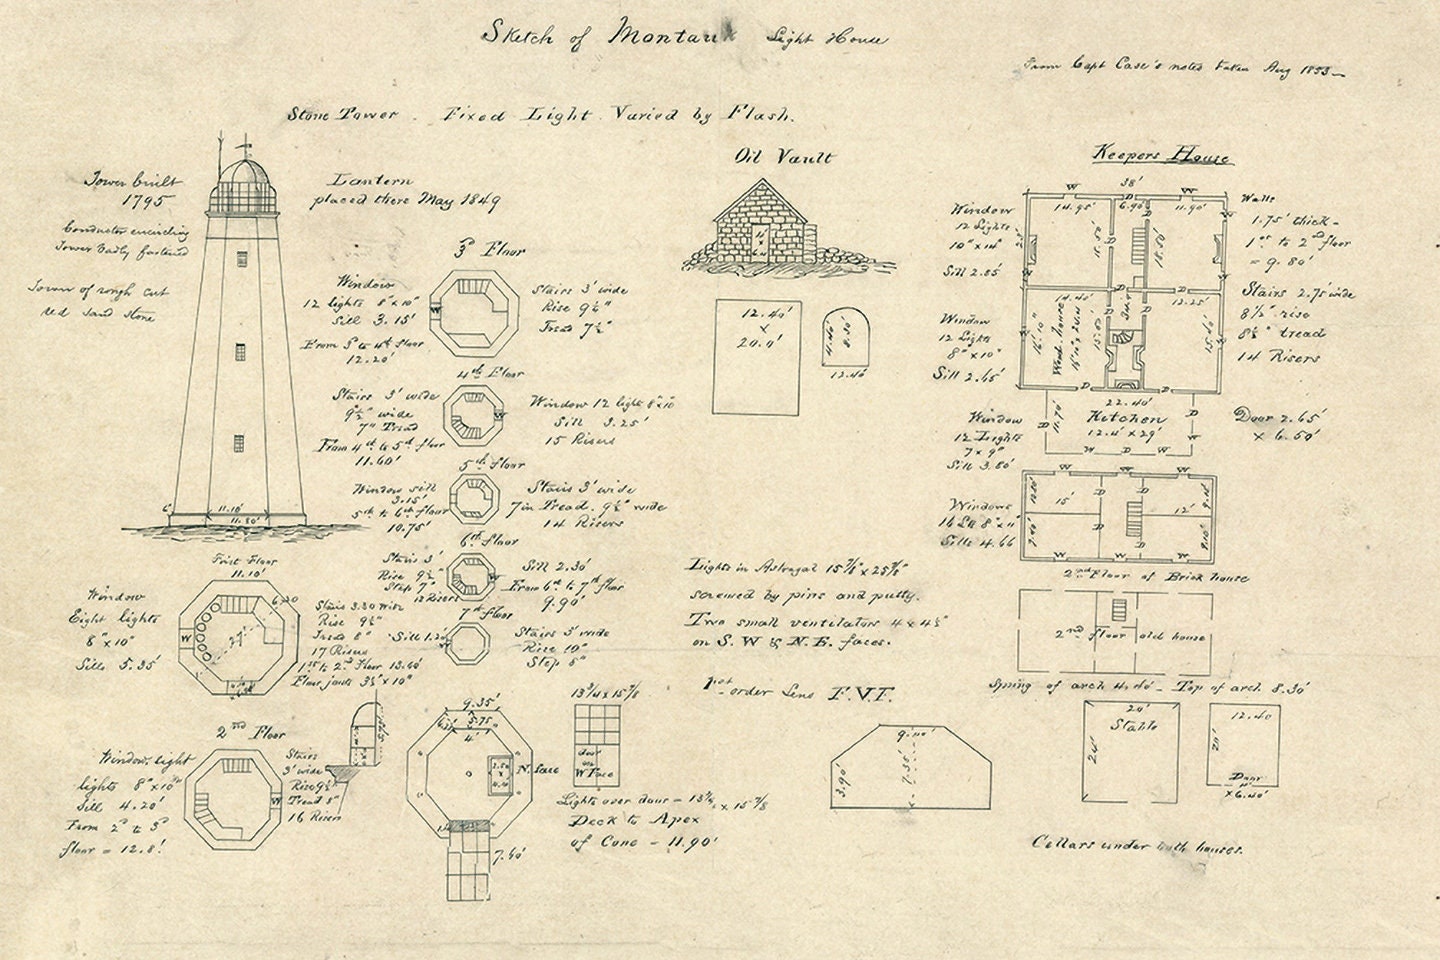 Sketch of Montauk Light House
From Capt Case's notes taken Aug 1853
Stone Tower. Fixed Light Varied by Flash.
Tower built
1795
Conductor encircling
Tower badly fastened
Tower of rough cut
red sand stone
6'
11.10'
11.80'
Lantern
placed there May 1849
3d Floor
Window
12 lights 8"x10"
Sill 3.15'
12.20'
W
Stairs 3' wide
Rise 9½"
Tread 7½"
4th Floor
Stairs 3' wide
9½" wide
7" Tread
From 4th to 5th floor
11.60'
W
Window 12 light 8"x10"
Sill 3.25'
15 Risers
5th floor
Window sill
3.15'
5th to 6th floor
10.75'
Stairs 3' wide
7 in Tread. 9½" wide
14 Risers
6th floor
Stairs 3'
Rise 9½"
Step 7"
12 Risers
Sill 2.30'
From 6th to 7th floor
9.90'
7th floor
Sill 1.20'
Stairs 3' wide
Rise 10"
Step 8"
First Floor
11.10'
Window
Eight lights
8"x10"
Sills 5.35'
W
6.20
27'
Stairs 3.30 wide
Rise 9½"
Tread 8"
17 Risers
1st to 2d Floor 13.60'
Floor joists 3½'x10"
2nd Floor
Window. light
lights 8"x10"
Sill 4.20'
From 2d to 3d
floor = 12.8'
W
Stairs
3' wide
Rise 9½"
Tread 8"
16 Risers
9.35'
5.75
4'
N. face
7.60'
13¾ x 15⅞
door
on
W Face
Lights over door = 13¾ x 15⅞
Deck to Apex
of Cone - 11.90'
Oil Vault
12.40'
x
20.0'
4.40'
8.30'
12.40'
Lights in Astragal 15⅞" x 25⅞"
screwed by pins and putty.
Two small ventilators 4 x 4½"
on S. W & N. E. faces.
1st order Lens F.V.F.
3.90'
9.40'
7.35'
Keepers House
38'
W W
14.95' D 6.90' 11.90'
18.50' 18.50'
Window
12 Lights
10"x14"
Sill 2.85'
Walls
1.75' thick -
1st to 2nd floor
= 9.80'
Stairs 2.75' wide
8½" rise
8½" tread
14 Risers
Window
12 Lights
8"x10"
Sill 2.65'
14.40' 12.25'
16.10"
15.50'
15.50'
22.40'
Kitchen
12.4' x 29'
11.70'
Window
12 Lights
7 x 9"
Sill 3.80'
Door 2.65'
x 6.50'
W D W
Windows
Sills 4.66
15' 12'
2nd Floor of Brick house
2nd floor old house
Spring of arch 4.40' - Top of arch 8.30'
20'
Stable
24'
12.40
20'
Door
x 6.40'
Cellars under both houses.